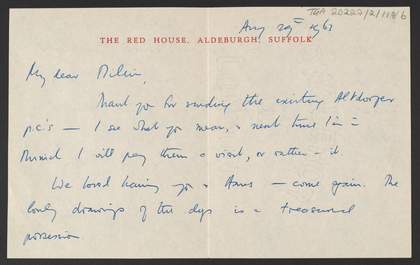 TGA 20222/2/11/8/6
Aug 29th 1961
THE RED HOUSE, ALDEBURGH, SUFFOLK
My dear Milein,
Thank you for sending the exciting Altdorfer
p.c's — I see what you mean, & next time I'm in
Munich I will pay them a visit, or rather — it.
We loved having you & — come again. The
lovely drawings of the dogs is a treasured
possession